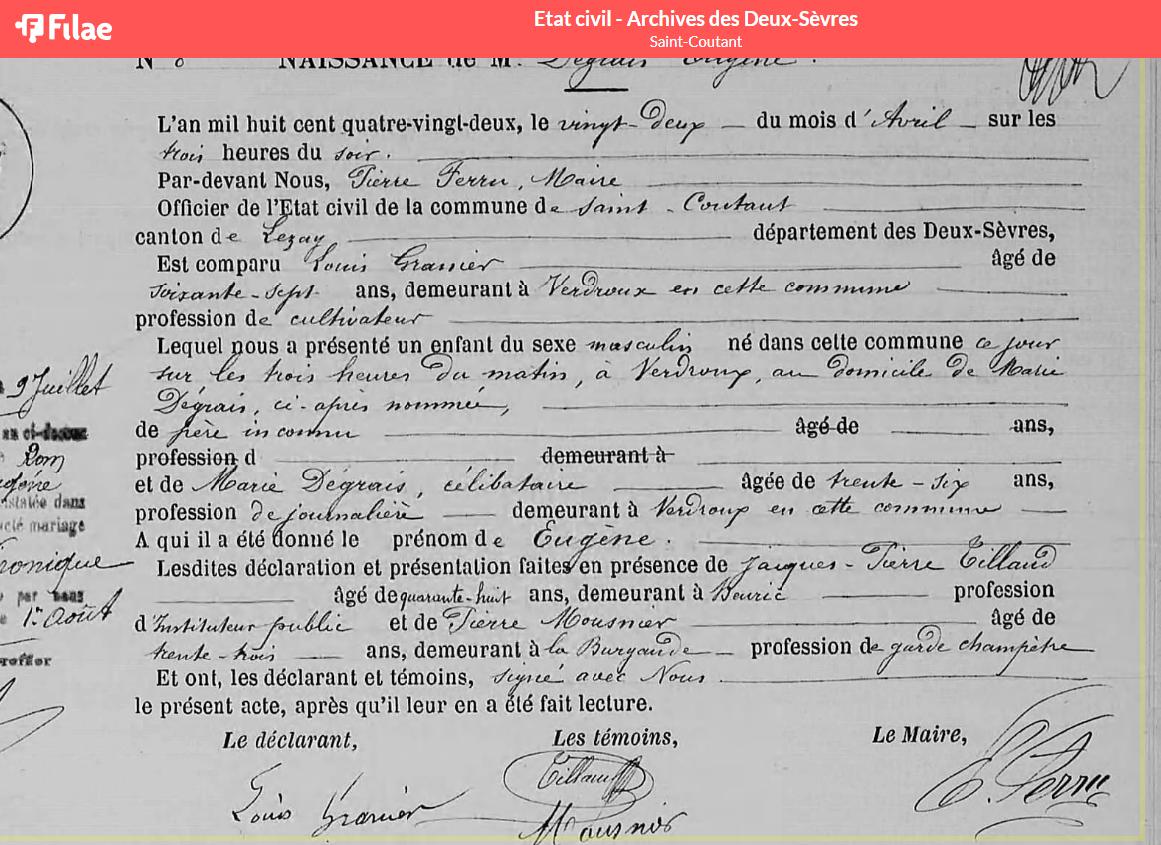 Filae
Etat civil - Archives des Deux-Sèvres
Saint-Coutant
N° 8 NAISSANCE de M. Dégrais Eugène.
L'an mil huit cent quatre-vingt-deux, le vingt-deux du mois d'Avril sur les
trois heures du soir.
Par-devant Nous, Pierre Ferru, Maire
Officier de l'Etat civil de la commune de Saint-Coutant
canton de Lezay département des Deux-Sèvres,
Est comparu Louis Granier âgé de
soixante-sept ans, demeurant à Verdroux en cette commune
profession de cultivateur
Lequel nous a présenté un enfant du sexe masculin né dans cette commune ce jour
sur les trois heures du matin, à Verdroux, au domicile de Marie
Dégrais, ci-après nommée,
de père inconnu âgé de ans,
profession d demeurant à
et de Marie Dégrais, célibataire âgée de trente-six ans,
profession de journalière demeurant à Verdroux en cette commune
A qui il a été donné le prénom de Eugène.
Lesdites déclaration et présentation faites en présence de Jacques-Pierre Tillaud
âgé de quarante-huit ans, demeurant à profession
d'Instituteur public et de Pierre Mousnier âgé de
trente-trois ans, demeurant à la Burgaude profession de garde champêtre
Et ont, les déclarant et témoins, signé avec Nous
le présent acte, après qu'il leur en a été fait lecture.
Le déclarant, Les témoins, Le Maire,
Louis Granier Tillaud P. Ferru
Mousnier
9 Juillet
au ci-dessus
Rom
dans
acté mariage
par nous
1er Août